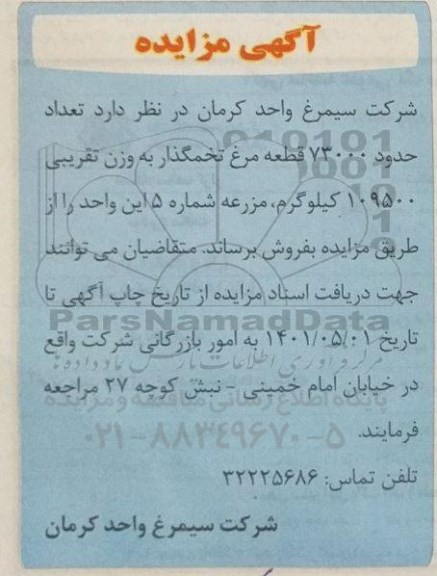 آگهی مزایده
شرکت سیمرغ واحد کرمان در نظر دارد تعداد
حدود ۷۳۰۰۰ قطعه مرغ تخمگذار به وزن تقریبی
۱۰۹۵۰۰ کیلوگرم، مزرعه شماره ۵ این واحد را از
طریق مزایده بفروش برساند. متقاضیان می توانند
جهت دریافت اسناد مزایده از تاریخ چاپ آگهی تا
ParsNamadData
تاریخ ۱۴۰۱/۰۵/۰۱ به امور بازرگانی شرکت واقع
در خیابان امام خمینی - نبش کوچه ۲۷ مراجعه
پایگاه اطلاع رسانی مناقصه و مزایده
فرمایند.
۰۲۱-۸۸۳۴۹۶۷۰-۵
تلفن تماس: ۳۲۲۲۵۶۸۶
شرکت سیمرغ واحد کرمان